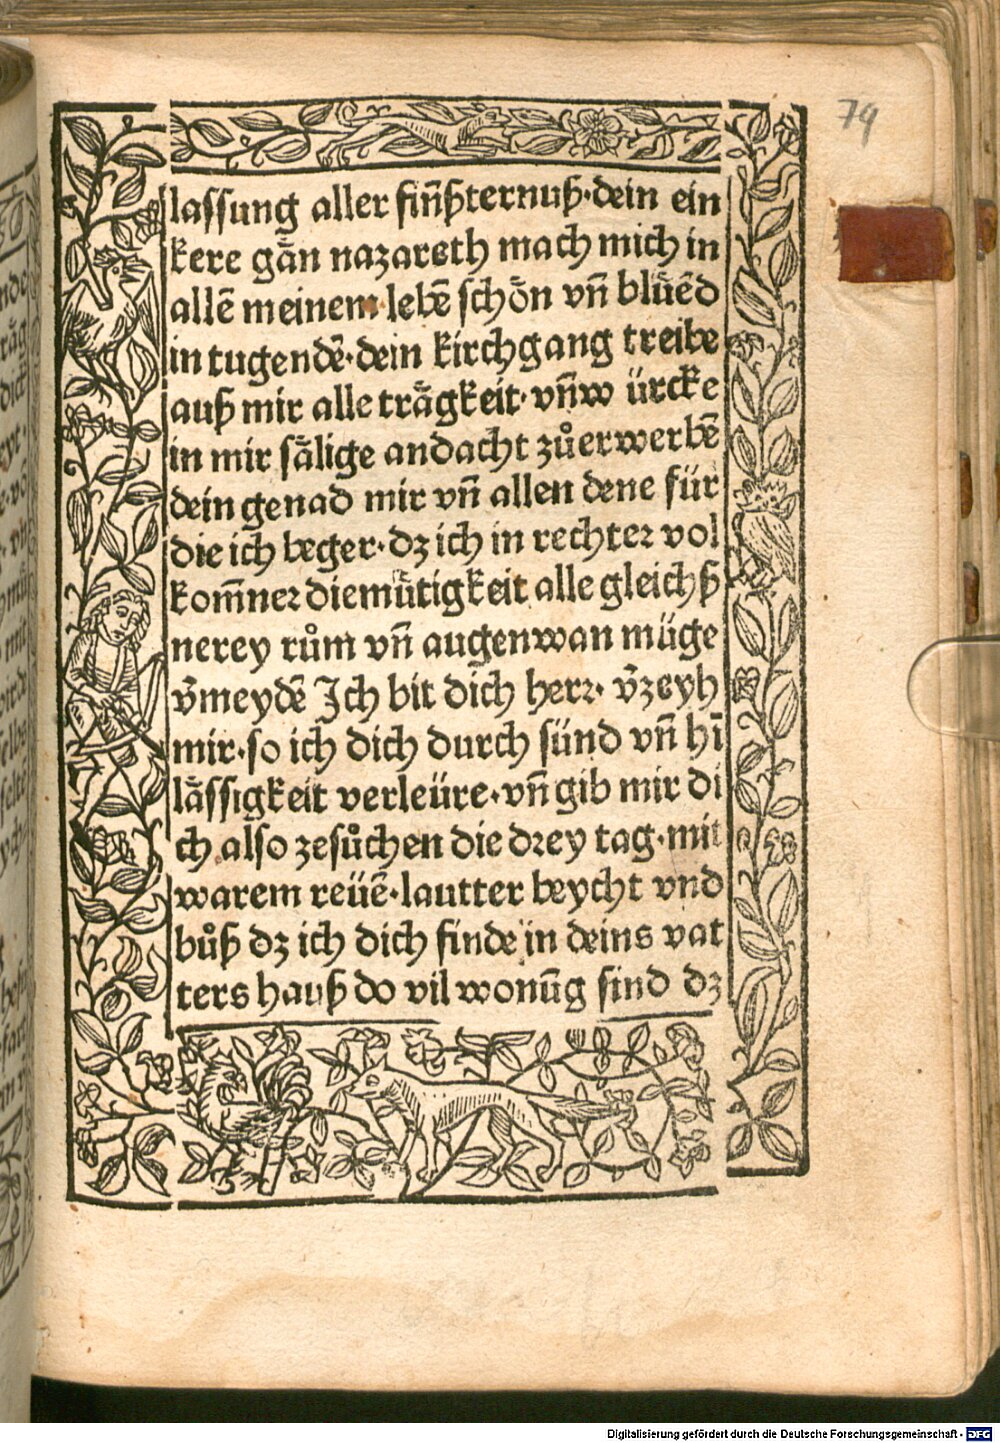 79
lassung aller fin̄ßternuß·dein ein
kere gaͤn nazareth mach mich in
allē meinem lebē schoͤn vn̄ bluͤēd
in tugendē·dein kirchgang treibe
auß mir alle traͤgkeit·vn̄w ürcke
in mir saͤlige andacht zuͦerwerbē
dein genad mir vn̄ allen dene für
die ich beger·dz ich in rechter vol
kom̄ner diemuͤtigkeit alle gleichß
nerey ruͦm vn̄ augenwan müge
v̄meydē Ich bit dich herr· v̄zeyh
mir·so ich dich durch sünd vn̄ hī
laͤssigkeit verleüre·vn̄ gib mir di
ch also zesuͦchen die drey tag·mit
warem reüē·lautter beycht vnd
buͦß dz ich dich finde in deins vat
ters hauß do vil wonūg sind dz
Digitalisierung gefördert durch die Deutsche Forschungsgemeinschaft - DFG